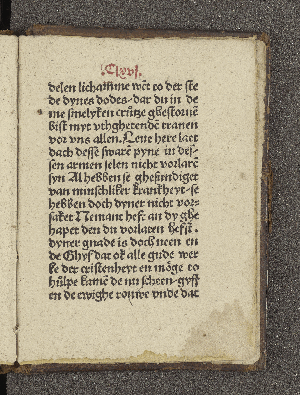 .Clxvi.
delen lichamme wēt to der ste
de dynes dodes · dar du in de
me smelyken crütze ghestoruē
bist myt vthghetendē tranen
vor vns allen. Leue here laet
doch desse sware pyne in des-
sen armen selen nicht vorlarē
syn Al hebben se ghesundiget
van minschliker krankheyt · se
hebben doch dyner nicht vor-
saket Nemant hefft an dy ghe
hapet den du vorlaten hefst ·
dyner gnade is doch neen en
de Ghyf dat ok alle gude wer
ke der cristenheyt en möge to
hülpe kamē de nu screen · gyff
en de ewighe rouwe vnde dat